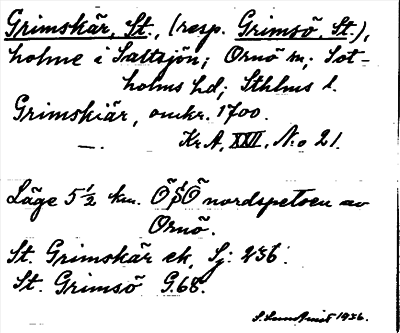 Grimskär, St., (resp. Grimsö, St.),
holme i Saltsjön; Ornö sn; Sot-
holms hd; Sthlms l.
Grimskiär, omkr. 1700.
—. Kr. A. XXII. No 21.
Läge 5½ km. ÖSÖ nordspetsen av
Ornö.
St. Grimskär ek. Sj: 236.
St. Grimsö G.68.
1936.